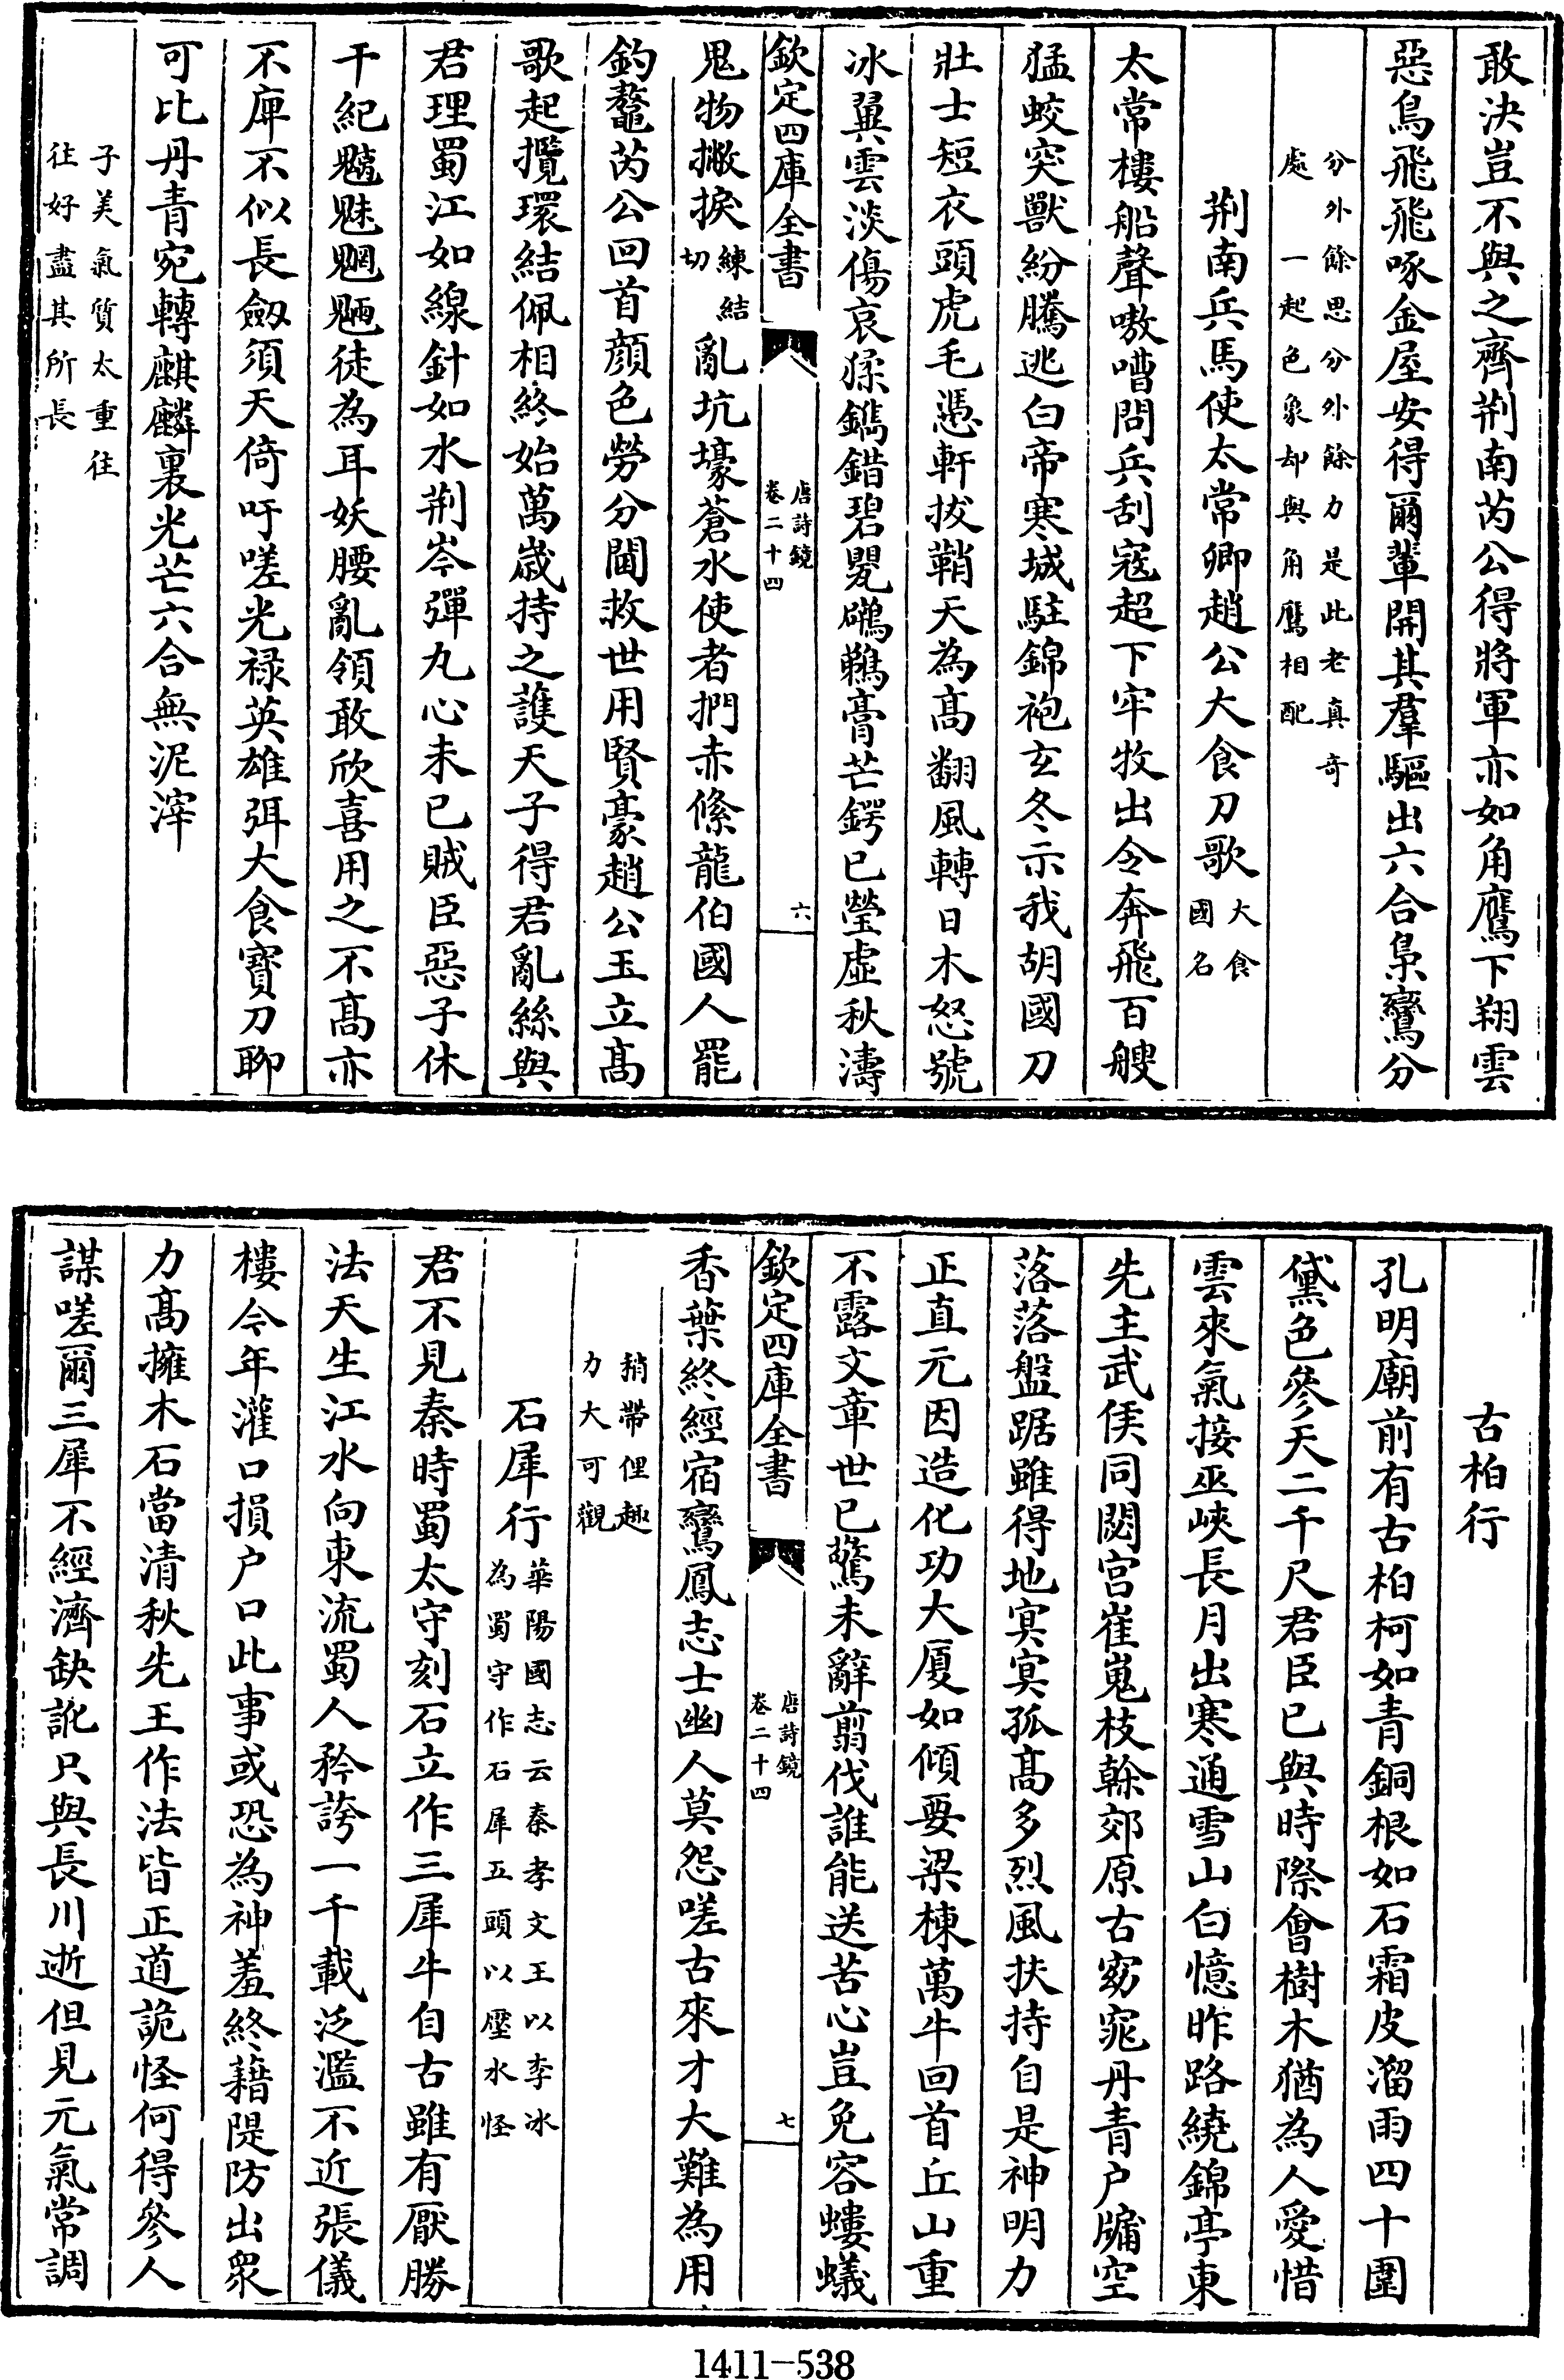 敢決豈不與之齊荆南芮公得將軍亦如角鷹下翔雲
惡鳥飛飛啄金屋安得爾輩開其羣驅出六合梟鸞分
分外餘思分外餘力是此老真奇
處一起色象却與角鷹相配
荆南兵馬使太常卿趙公大食刀歌大食
國名
太常樓船聲嗷嘈問兵刮寇超下牢牧出令奔飛百艘
猛蛟突獸紛騰逃白帝寒城駐錦袍玄冬示我胡國刀
壯士短衣頭虎毛憑軒拔鞘天為髙翻風轉日木怒號
冰翼雲淡傷哀猱鐫錯碧甖鸊鵜膏芒鍔已瑩虛秋濤
欽定四庫全書
唐詩鏡
卷二十四
六
鬼物撇捩練結
切亂坑壕蒼水使者捫赤絛龍伯國人罷
釣鼇芮公回首顔色勞分閫救世用賢豪趙公玉立髙
歌起攬環結佩相終始萬歲持之護天子得君亂絲與
君理蜀江如線針如水荆岑彈丸心未已賊臣惡子休
干紀魑魅魍魎徒為耳妖腰亂領敢欣喜用之不髙亦
不庳不似長劔須天倚吁嗟光禄英雄弭大食寶刀聊
可比丹青宛轉麒麟裏光芒六合無泥滓
子美氣質太重往
往好盡其所長
古柏行
孔明廟前有古柏柯如青銅根如石霜皮溜雨四十圍
黛色參天二千尺君臣已與時際會樹木猶為人愛惜
雲來氣接巫峽長月出寒通雪山白憶昨路繞錦亭東
先主武侯同閟宫崔嵬枝榦郊原古窈窕丹青户牖空
落落盤踞雖得地冥冥孤髙多烈風扶持自是神明力
正直元因造化功大厦如傾要梁棟萬牛回首丘山重
不露文章世已驚未辭翦伐誰能送苦心豈免容螻蟻
欽定四庫全書
唐詩鏡
卷二十四
七
香葉終經宿鸞鳳志士幽人莫怨嗟古來才大難為用
稍帶俚趣
力大可觀
石犀行華陽國志云秦孝文王以李冰
為蜀守作石犀五頭以壓水怪
君不見秦時蜀太守刻石立作三犀牛自古雖有厭勝
法天生江水向東流蜀人矜誇一千載泛濫不近張儀
樓今年灌口損户口此事或恐為神羞終藉隄防出衆
力髙擁木石當清秋先王作法皆正道詭怪何得參人
謀嗟爾三犀不經濟缺訛只與長川逝但見元氣常調
1411-538